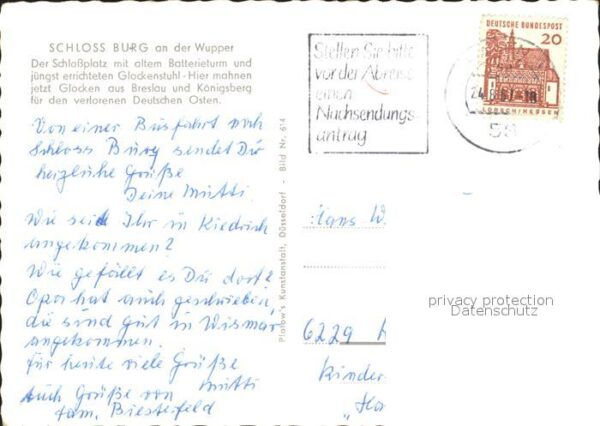 SCHLOSS BURG an der Wupper
Der Schloßplatz mit altem Batterieturm und
jüngst errichteten Glockenstuhl - Hier mahnen
jetzt Glocken aus Breslau und Königsberg
für den verlorenen Deutschen Osten.
Von einer Busfahrt nach
Schloss Burg sendet Dir
herzliche Grüße
Deine Mutti.
Wie seid Ihr in Kiedrich
angekommen?
Wie gefällt es Dir dort?
Opa hat auch geschrieben,
die sind gut in Wismar
angekommen.
Für heute viele Grüße
Mutti
Auch Grüße von
Fam. Biesterfeld
Plarow's Kunstanstalt, Düsseldorf - Bild Nr. 614
Stellen Sie bitte
vor der Abreise
einen
Nachsendungs-
antrag
DEUTSCHE BUNDESPOST
20
LORSCH/HESSEN
24.8.67-18
Hans W
6229
Kinder-
"Ha
privacy protection
Datenschutz